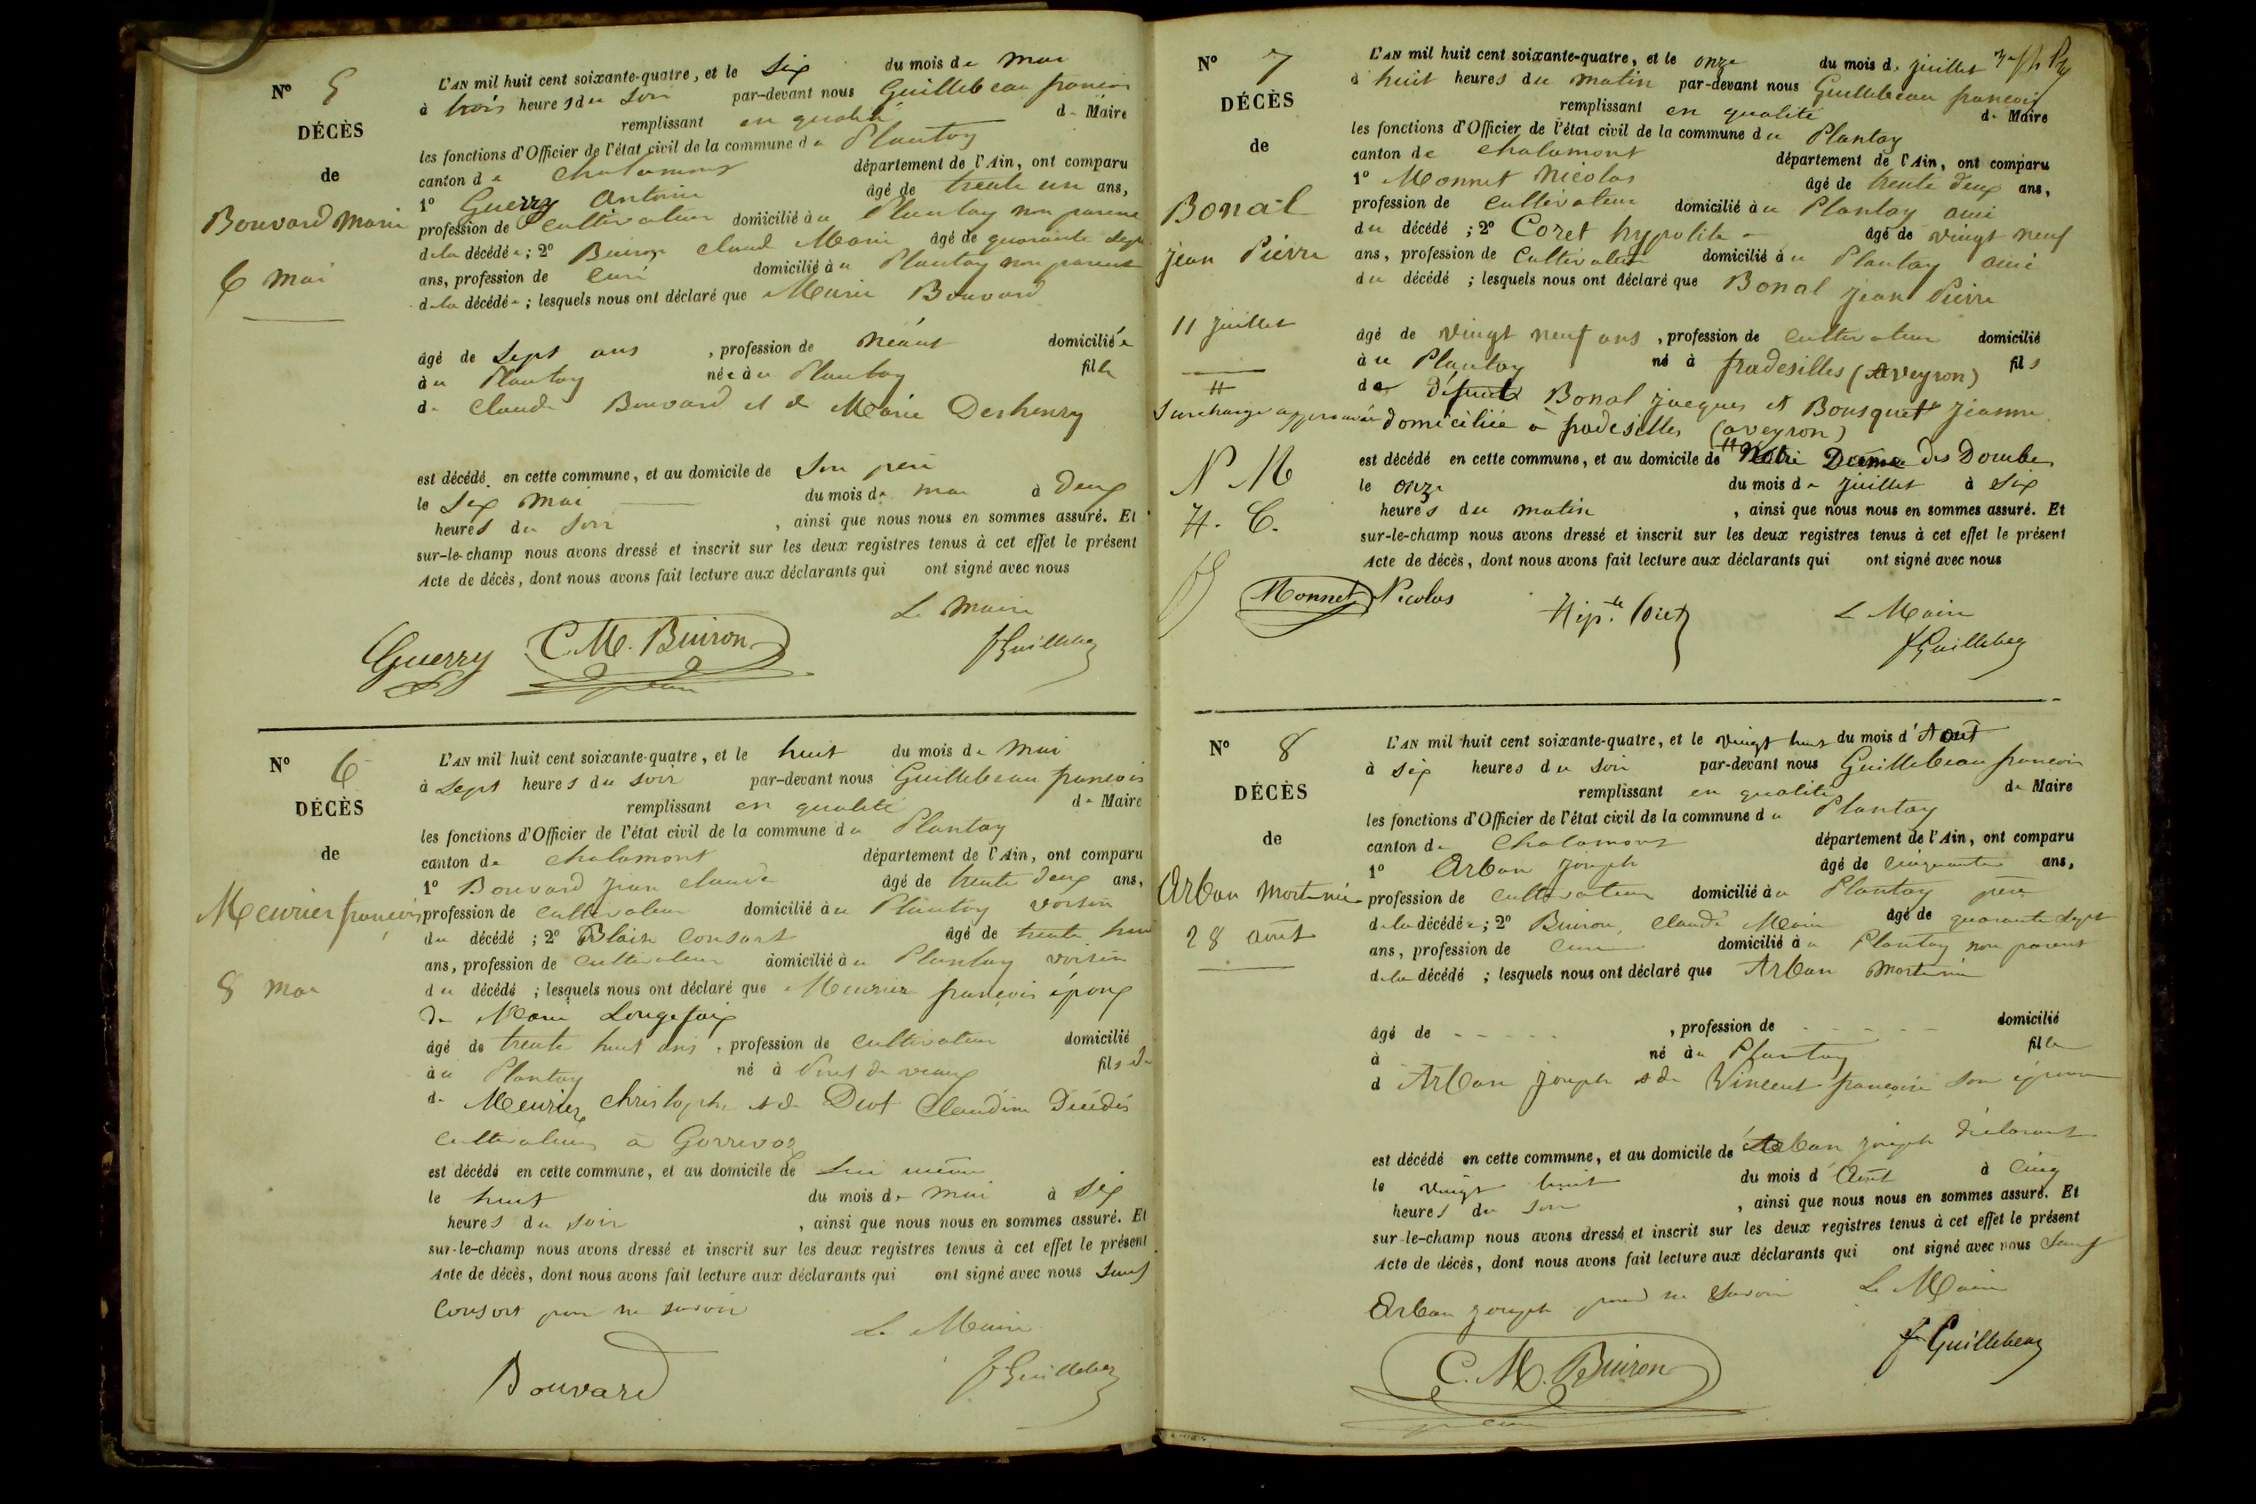 N° 5
DÉCÈS
de
Bouvard Marie
6 mai
L'AN mil huit cent soixante-quatre, et le six du mois de mai
à trois heures du soir par-devant nous Guillebeau françois
remplissant en qualité de Maire
les fonctions d'Officier de l'état civil de la commune du Plantay
canton de Chalamont département de l'Ain, ont comparu
1° Guerry Antoine âgé de trente un ans,
profession de cultivateur domicilié au Plantay non parent
de la décédée; 2° Buiron Claude Marie âgé de quarante sept
ans, profession de curé domicilié au Plantay non parent
de la décédée; lesquels nous ont déclaré que Marie Bouvard
âgé de sept ans, profession de néant domiciliée
au Plantay née au Plantay fille
de Claude Bouvard et de Marie Deshenry
est décédé en cette commune, et au domicile de son père
le six mai du mois de mai à deux
heures du soir, ainsi que nous nous en sommes assuré. Et
sur-le-champ nous avons dressé et inscrit sur les deux registres tenus à cet effet le présent
Acte de décès, dont nous avons fait lecture aux déclarants qui ont signé avec nous
Le Maire
Guerry C. M. Buiron f Guillebeau
N° 6
DÉCÈS
de
Meurier françois
8 mai
L'AN mil huit cent soixante-quatre, et le huit du mois de mai
à sept heures du soir par-devant nous Guillebeau françois
remplissant en qualité de Maire
les fonctions d'Officier de l'état civil de la commune du Plantay
canton de Chalamont département de l'Ain, ont comparu
1° Bouvard Jean Claude âgé de trente deux ans,
profession de cultivateur domicilié au Plantay voisin
du décédé; 2° Blaise Consort âgé de trente huit
ans, profession de cultivateur domicilié au Plantay voisin
du décédé; lesquels nous ont déclaré que Meurier françois époux
de Marie Longefaix
âgé de trente huit ans, profession de cultivateur domicilié
au Plantay né à de veaux fils de
de Meurier Christophe et de Diot Claudine Décédés
cultivateurs à Gorrevod
est décédé en cette commune, et au domicile de lui même
le huit du mois de mai à six
heures du soir, ainsi que nous nous en sommes assuré. Et
sur-le-champ nous avons dressé et inscrit sur les deux registres tenus à cet effet le présent
Acte de décès, dont nous avons fait lecture aux déclarants qui ont signé avec nous sauf
Consort pour ne savoir
Le Maire
Bouvard f Guillebeau
N° 7
DÉCÈS
de
Bonal
jean Pierre
11 juillet
#
Surcharge approuvée
N M
H. C.
L'AN mil huit cent soixante-quatre, et le onze du mois de juillet
à huit heures du matin par-devant nous Guillebeau françois
remplissant en qualité de Maire
les fonctions d'Officier de l'état civil de la commune du Plantay
canton de Chalamont département de l'Ain, ont comparu
1° Monnet Nicolas âgé de trente deux ans,
profession de cultivateur domicilié au Plantay ami
du décédé; 2° Coret hypolite âgé de vingt neuf
ans, profession de cultivateur domicilié au Plantay ami
du décédé; lesquels nous ont déclaré que Bonal jean Pierre
âgé de vingt neuf ans, profession de cultivateur domicilié
au Plantay né à fradesilles (Aveyron) fils
de défunt Bonal jacques et Bousquet jeanne
domiciliée à fradesilles (aveyron)
est décédé en cette commune, et au domicile de # Notre Dame des Dombes
le onze du mois de juillet à six
heures du matin, ainsi que nous nous en sommes assuré. Et
sur-le-champ nous avons dressé et inscrit sur les deux registres tenus à cet effet le présent
Acte de décès, dont nous avons fait lecture aux déclarants qui ont signé avec nous
Monnet Nicolas Hip.te Coret Le Maire
f Guillebeau
N° 8
DÉCÈS
de
Arban
28 août
L'AN mil huit cent soixante-quatre, et le vingt huit du mois d'Aout
à six heures du soir par-devant nous Guillebeau françois
remplissant en qualité de Maire
les fonctions d'Officier de l'état civil de la commune du Plantay
canton de Chalamont département de l'Ain, ont comparu
1° Arban joseph âgé de cinquante ans,
profession de cultivateur domicilié au Plantay père
de la décédée; 2° Buiron Claude Marie âgé de quarante sept
ans, profession de curé domicilié au Plantay non parent
de la décédé; lesquels nous ont déclaré que Arban
âgé de - - - - -, profession de - - - - - domicilié
à né au Plantay fille
d Arban joseph et de Vincent françoise son épouse
est décédé en cette commune, et au domicile de Arban joseph déclarant
le vingt huit du mois d Août à cinq
heures du soir, ainsi que nous nous en sommes assuré. Et
sur-le-champ nous avons dressé et inscrit sur les deux registres tenus à cet effet le présent
Acte de décès, dont nous avons fait lecture aux déclarants qui ont signé avec nous sauf
Arban joseph pour ne savoir Le Maire
C. M. Buiron f Guillebeau